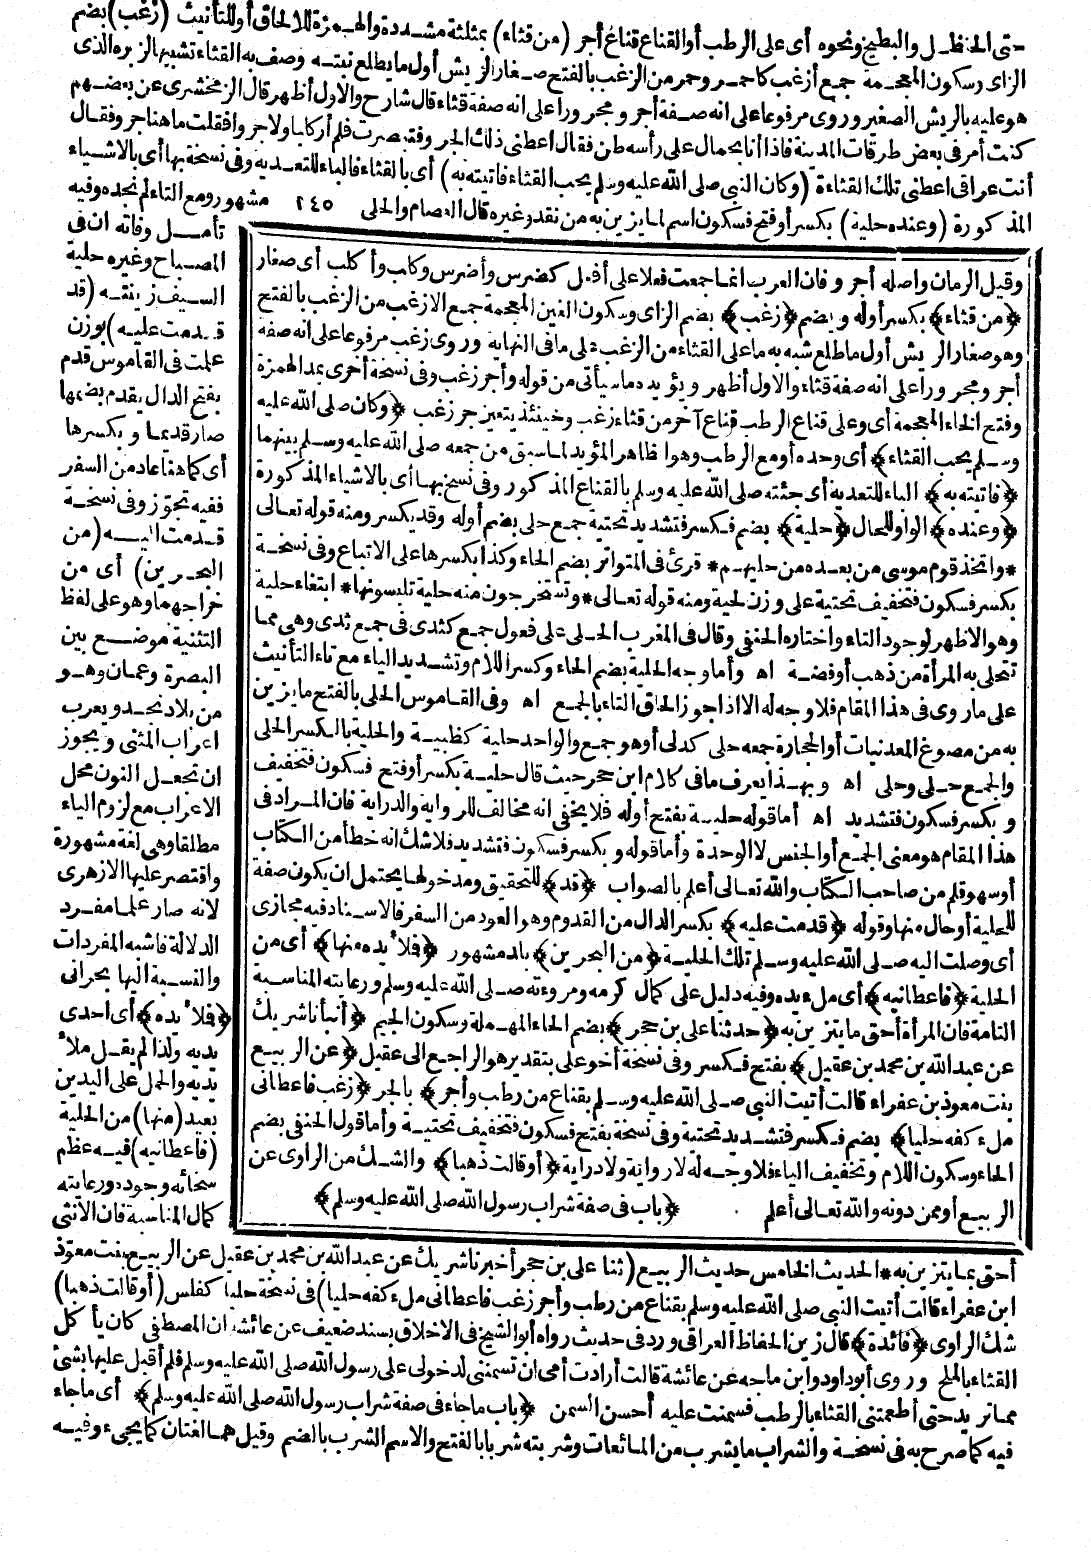 حتى الحنظل والبطيخ ونحوه أى على الرطب أو القناع قناع أجر (من قثاء) بمثلثة مشددة والهمزة للالحاق أو للتأنيث (زغب) بضم
الزاى وسكون المعجمة جمع أزغب كأحمر وحمر من الزغب بالفتح صغار الريش أول ما يطلع نبته وصف به القثاء تشبيها لزبره الذى
هو عليه بالريش الصغير وروى مرفوعا على انه صفة أجر ومجرورا على انه صفة قثاء قال شارح والاول أظهر قال الزمخشرى عن بعضهم
كنت أمر فى بعض طرقات المدينة فاذا أنا بحمال على رأسه طن فقال أعطنى ذلك الجر وفتبصرت فلم أر كلبا ولا جروا فقلت ما هنا جرو فقال
أنت عراقى اعطنى تلك القثاءة (وكان النبى صلى الله عليه وسلم يحب القثاء فأتيته به) أى بالقثاء فالباء للتعدية وفى نسخة بها أى بالاشياء
المذكورة (وعنده حلية) بكسر أو فتح فسكون اسم لما يزين به من نقد وغيره قال العصام والحلى ٢٤٥ مشهور ومع التاء لم نجده وفيه
تأمل وفاته ان فى
المصباح وغيره حلية
السيف زينته (قد
قدمت عليه) بوزن
علمت فى القاموس قدم
بفتح الدال يقدم بضمها
صار قديما وبكسرها
أى كما هنا عاد من السفر
ففيه تجوز وفى نسخة
قدمت اليه (من
البحرين) أى من
خراجهما وهو على لفظ
التثنية موضع بين
البصرة وعمان وهو
من بلاد نجد ويعرب
اعراب المثنى ويجوز
ان تجعل النون محل
الاعراب مع لزوم الياء
مطلقا وهى لغة مشهورة
واقتصر عليها الازهرى
لانه صار علما مفرد
الدلالة فأشبه المفردات
والنسبة اليها بحرانى
(فلأ يده) أى احدى
يديه ولذا لم يقل ملأ
يديه والحمل على اليدين
بعيد (منها) من الحلية
(فأعطانيه) فيه عظم
سخائه وجوده ورعايته
كمال المناسبة فان الانثى
وقيل الرمان واصله أجرو فان العرب انما جمعت فعلا على أفعل كضرس وأضرس وكلب وأكلب أى صغار
(من قثاء) بكسر أوله ويضم (زغب) بضم الزاى وسكون الغين المعجمة جمع الازغب من الزغب بالفتح
وهو صغار الريش أول ما طلع شبه به ما على القثاء من الزغب على ما فى النهاية وروى زغب مرفوعا على انه صفة
أجر ومجرورا على انه صفة قثاء والاول أظهر ويؤيده ما سيأتى من قوله وأجر زغب وفى نسخة أخرى بمد الهمزة
وفتح الخاء المعجمة أى وعلى قناع الرطب قناع آخر من قثاء زغب وحينئذ يتعين جر زغب (وكان صلى الله عليه
وسلم يحب القثاء) أى وحده أو مع الرطب وهو ظاهر المؤيد لما سبق من جمعه صلى الله عليه وسلم بينهما
(فأتيته به) الباء للتعدية أى جئته صلى الله عليه وسلم بالقناع المذكور وفى نسخ بها أى بالاشياء المذكورة
(وعنده) الواو للحال (حلية) بضم فكسر فتشديد تحتية جمع حلى بضم أوله وقد يكسر ومنه قوله تعالى
* واتخذ قوم موسى من بعده من حليهم * قرئ فى المتواتر بضم الحاء وكذا بكسرها على الاتباع وفى نسخة
بكسر فسكون فتخفيف تحتية على وزن لحية ومنه قوله تعالى * وتستخرجون منه حلية تلبسونها * ابتغاء حلية
وهو الاظهر لوجود التاء واختاره الحنفى وقال فى المغرب الحلى على فعول جمع كثدى فى جمع ثدى وهى مما
تتحلى به المرأة من ذهب أو فضة اه وأما وجه الحلية بضم الحاء وكسر اللام وتشديد الياء مع تاء التأنيث
على ما روى فى هذا المقام فلا وجه له الا اذا جوز الحاق التاء بالجمع اه وفى القاموس الحلى بالفتح ما يزين
به من مصوغ المعدنيات أو الحجارة جمعه حلى كدلى أو هو جمع والواحد حلية كظبية والحلية بالكسر الحلى
والجمع حلى وحلى اه وبهذا يعرف ما فى كلام ابن حجر حيث قال حلية بكسر أو فتح فسكون فتخفيف
وبكسر فسكون فتشديد اه أما قوله حلية بفتح أوله فلا يخفى انه مخالف للرواية والدراية فان المراد فى
هذا المقام هو معنى الجمع أو الجنس لا الوحدة وأما قوله وبكسر فسكون فتشديد فلا شك انه خطأ من الكتاب
أو سهو قلم من صاحب الكتاب والله تعالى أعلم بالصواب (قد) للتحقيق ومدخولها يحتمل ان يكون صفة
للحلية أو حال منها وقوله (قدمت عليه) بكسر الدال من القدوم وهو العود من السفر فالاسناد فيه مجازى
أى وصلت اليه صلى الله عليه وسلم تلك الحلية (من البحرين) بلد مشهور (فلأ يده منها) أى من
الحلية (فأعطانيه) أى ملء يده وفيه دليل على كمال كرمه ومروءته صلى الله عليه وسلم ورعايته المناسبة
التامة فان المرأة أحق ما يتزين به (حدثنا على بن حجر) بضم الحاء المهملة وسكون الجيم (أنبأنا شريك
عن عبد الله بن محمد بن عقيل) بفتح فكسر وفى نسخة أخو على بتقدير هو الراجع الى عقيل (عن الربيع
بنت معوذ بن عفراء قالت أتيت النبى صلى الله عليه وسلم بقناع من رطب وأجر) بالجر (زغب فأعطانى
ملء كفه حليا) بضم فكسر فتشديد تحتية وفى نسخة بفتح فسكون فتخفيف تحتية وأما قول الحنفى بضم
الحاء وسكون اللام وتخفيف الياء فلا وجه له لا رواية ولا دراية (أو قالت ذهبا) والشك من الراوى عن
الربيع أو ممن دونه والله تعالى أعلم . (باب فى صفة شراب رسول الله صلى الله عليه وسلم)
أحق بما يتزين به * الحديث الخامس حديث الربيع (ثنا على بن حجر أخبرنا شريك عن عبد الله بن محمد بن عقيل عن الربيع بنت معوذ
ابن عفراء قالت أتيت النبى صلى الله عليه وسلم بقناع من رطب وأجر زغب فأعطانى ملء كفه حليا) فى نسخة حليا كفلس (أو قالت ذهبا)
شك الراوى (فائدة) قال زين الحفاظ العراقى ورد فى حديث رواه أبو الشيخ فى الاخلاق بسند ضعيف عن عائشة ان المصطفى كان يأكل
القثاء بالملح وروى أبو داود وابن ماجه عن عائشة قالت أرادت أمى ان تسمننى لدخولى على رسول الله صلى الله عليه وسلم فلم أقبل عليها بشئ
مما تريد حتى أطعمتنى القثاء بالرطب فسمنت عليه أحسن السمن (باب ما جاء فى صفة شراب رسول الله صلى الله عليه وسلم) أى ما جاء
فيه كما صرح به فى نسخة والشراب ما يشرب من المائعات وشربته شربا بالفتح والاسم الشرب بالضم وقيل هما لغتان كما يجىء وفيه